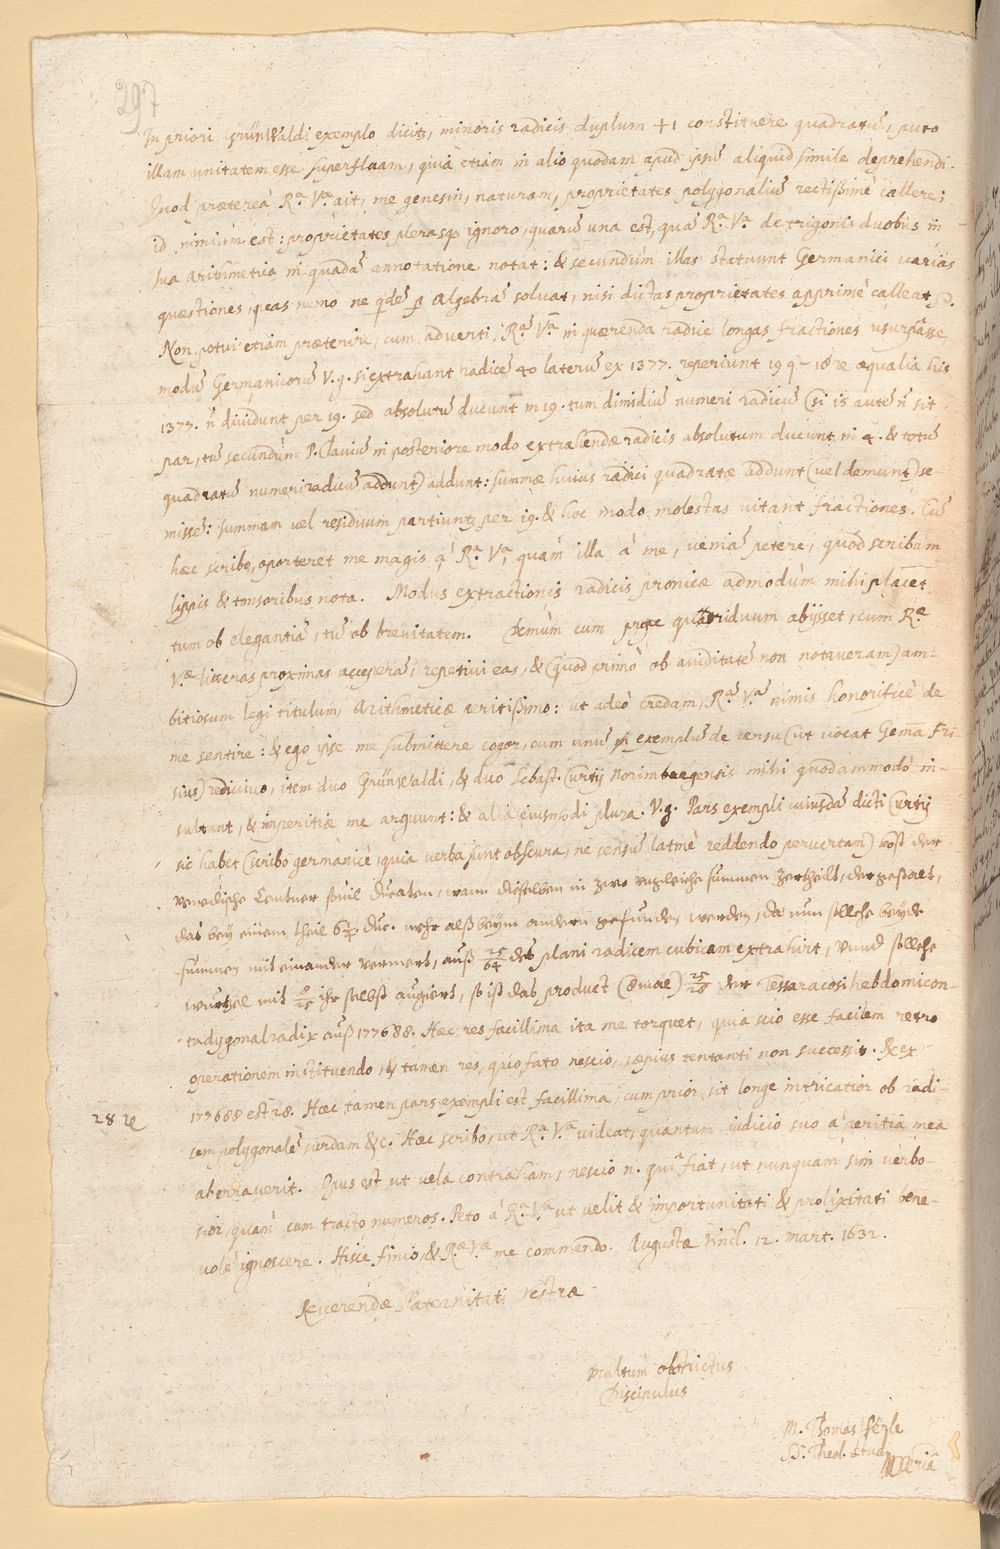 297
In priori Grünwaldi exemplo dicit, minoris radicis duplum + 1 constituere quadratū, puto
illam unitatem esse superfluam, quia etiam in alio quodam apud ipsū aliquid simile deprehendi.
Quod praeterea R.ᵃ V.ᵃ ait, me genesin, naturam, proprietates polygonaliū rectißimè callere;
id nimium est: proprietates plerasq ignoro, quarū una est, quā R.ᵃ V.ᵃ de trigonis duobus in
sua Arithmetica in quadā annotatione notat: & secundùm illas statuunt Germanici varias
quaestiones, quas nemo ne qdē p Algebrā solvat, nisi dictas proprietates apprimè calleat
Non potui etiam praeterire, cum adverti, R.ᵃ V.ᵃ in quaerenda radice longas fractiones usurpasse,
modū Germanicorū v.g. si extrahant radicē 40 laterū ex 1377. reperiunt 19 q – 18 re aequalia his
1377. ñ dividunt per 19. sed absolutū ducunt in 19. tum dimidiū numeri radicū (si is autē ñ sit
par, tū secundùm P. Claviū in posteriore modo extrahendae radicis absolutum ducunt in 4. & totū
quadratū numeri radicū addunt) addunt: summae huius radici quadratae addunt (vel demunt) se-
missē: summam vel residuum partiuntʒ per 19. & hoc modo molestas vitant fractiones. Cū
haec scribo, oporteret me magis à R.ᵃ V.ᵃ, quàm illa à me, veniā petere, quod scribam
lippis & tonsoribus nota. Modus extractionis radicis pronicae admodùm mihi placet
tum ob elegantiā, tū ob brevitatem. Demùm cum prope quatriduum abijsset, cum R.ᵃᵉ
V.ᵃᵉ litteras proximas acceperā, repetivi eas, & (quod primò ob aviditatē non notaveram) am-
bitiosum legi titulum, Arithmeticae peritißimo: ut adeò credam, R.ᵃ V.ᵃ nimis honorificè de
me sentire: & ego ipse me submittere cogor, cum unū exemplū de censu (ut vocat Gemā Fri-
sius) redivivo, item duo Grünwaldi, & duo Sebast. Curtij Norimbergensis mihi quodammodò in-
sultant, & imperitiae me arguunt: & alia eiusmodi plura. V.g. Pars exempli cuiusdā dicti Curtij
sic habet (scribo germanicè, quia verba sunt obscura, ne sensū latinè reddendo pervertam) kost der
Venedische Centner sovil Ducaten, wann dieselben in zwo ungleiche summen zertheilt, dergestalt,
das bey einem theil 6 duc. mehr alß beym andern gefunden werden, da nun solche beyde
summen mit einander vermert, auß 25/64 des plani radicem cubicam extrahirt, unnd solche
wurtzel mit 8/25 ihr selbst augiert, so ist das product 25/28 der Tessaracosihebdomicon-
tadygonal radix auß 177688. Haec res facillima ita me torquet, quia scio esse facilem retro
operationem instituendo, & tamen res, quo fato nescio, saepius tentanti non successit. Rx ex
177688 est 28. Haec tamen pars exempli est facillima, cum prior sit longe intricatior ob radi-
28 re
cem polygonalē surdam &c. Haec scribo, ut R.ᵃ V.ᵃ videat, quantum iudicio suo à peritia mea
aberraverit. Opus est ut vela contraham, nescio n. qui fiat, ut nunquam sim verbo-
sior, quàm cum tracto numeros. Peto à R.ᵃ V.ᵃ ut velit & importunitati & prolixitati bene-
volè ignoscere. Hisce finio, & R.ᵃᵉ V.ᵃᵉ me commendo. Augustae Vind. 12. Mart. 1632.
Reverendae Paternitati Vestrae
Multùm obstrictus
Discipulus
M. Thomas
SS. Theol. Stud.